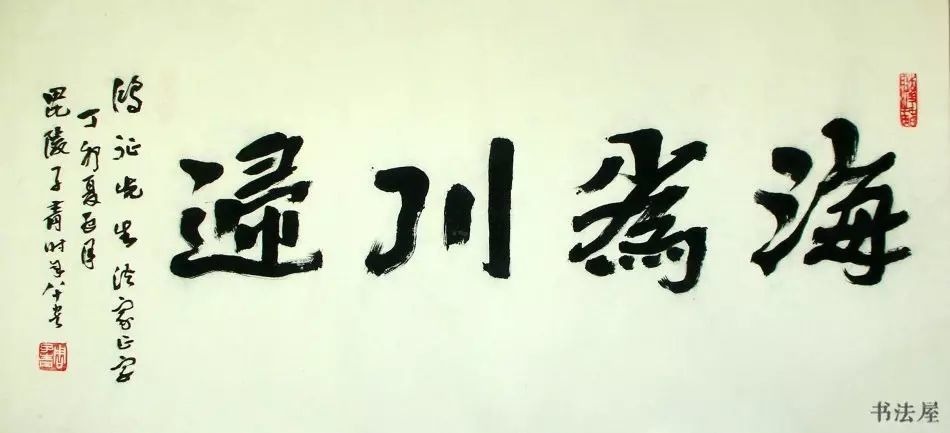 海為川歸
鴻征先生法家正字
丁卯夏五月
毘陵子青時年八十
书法屋